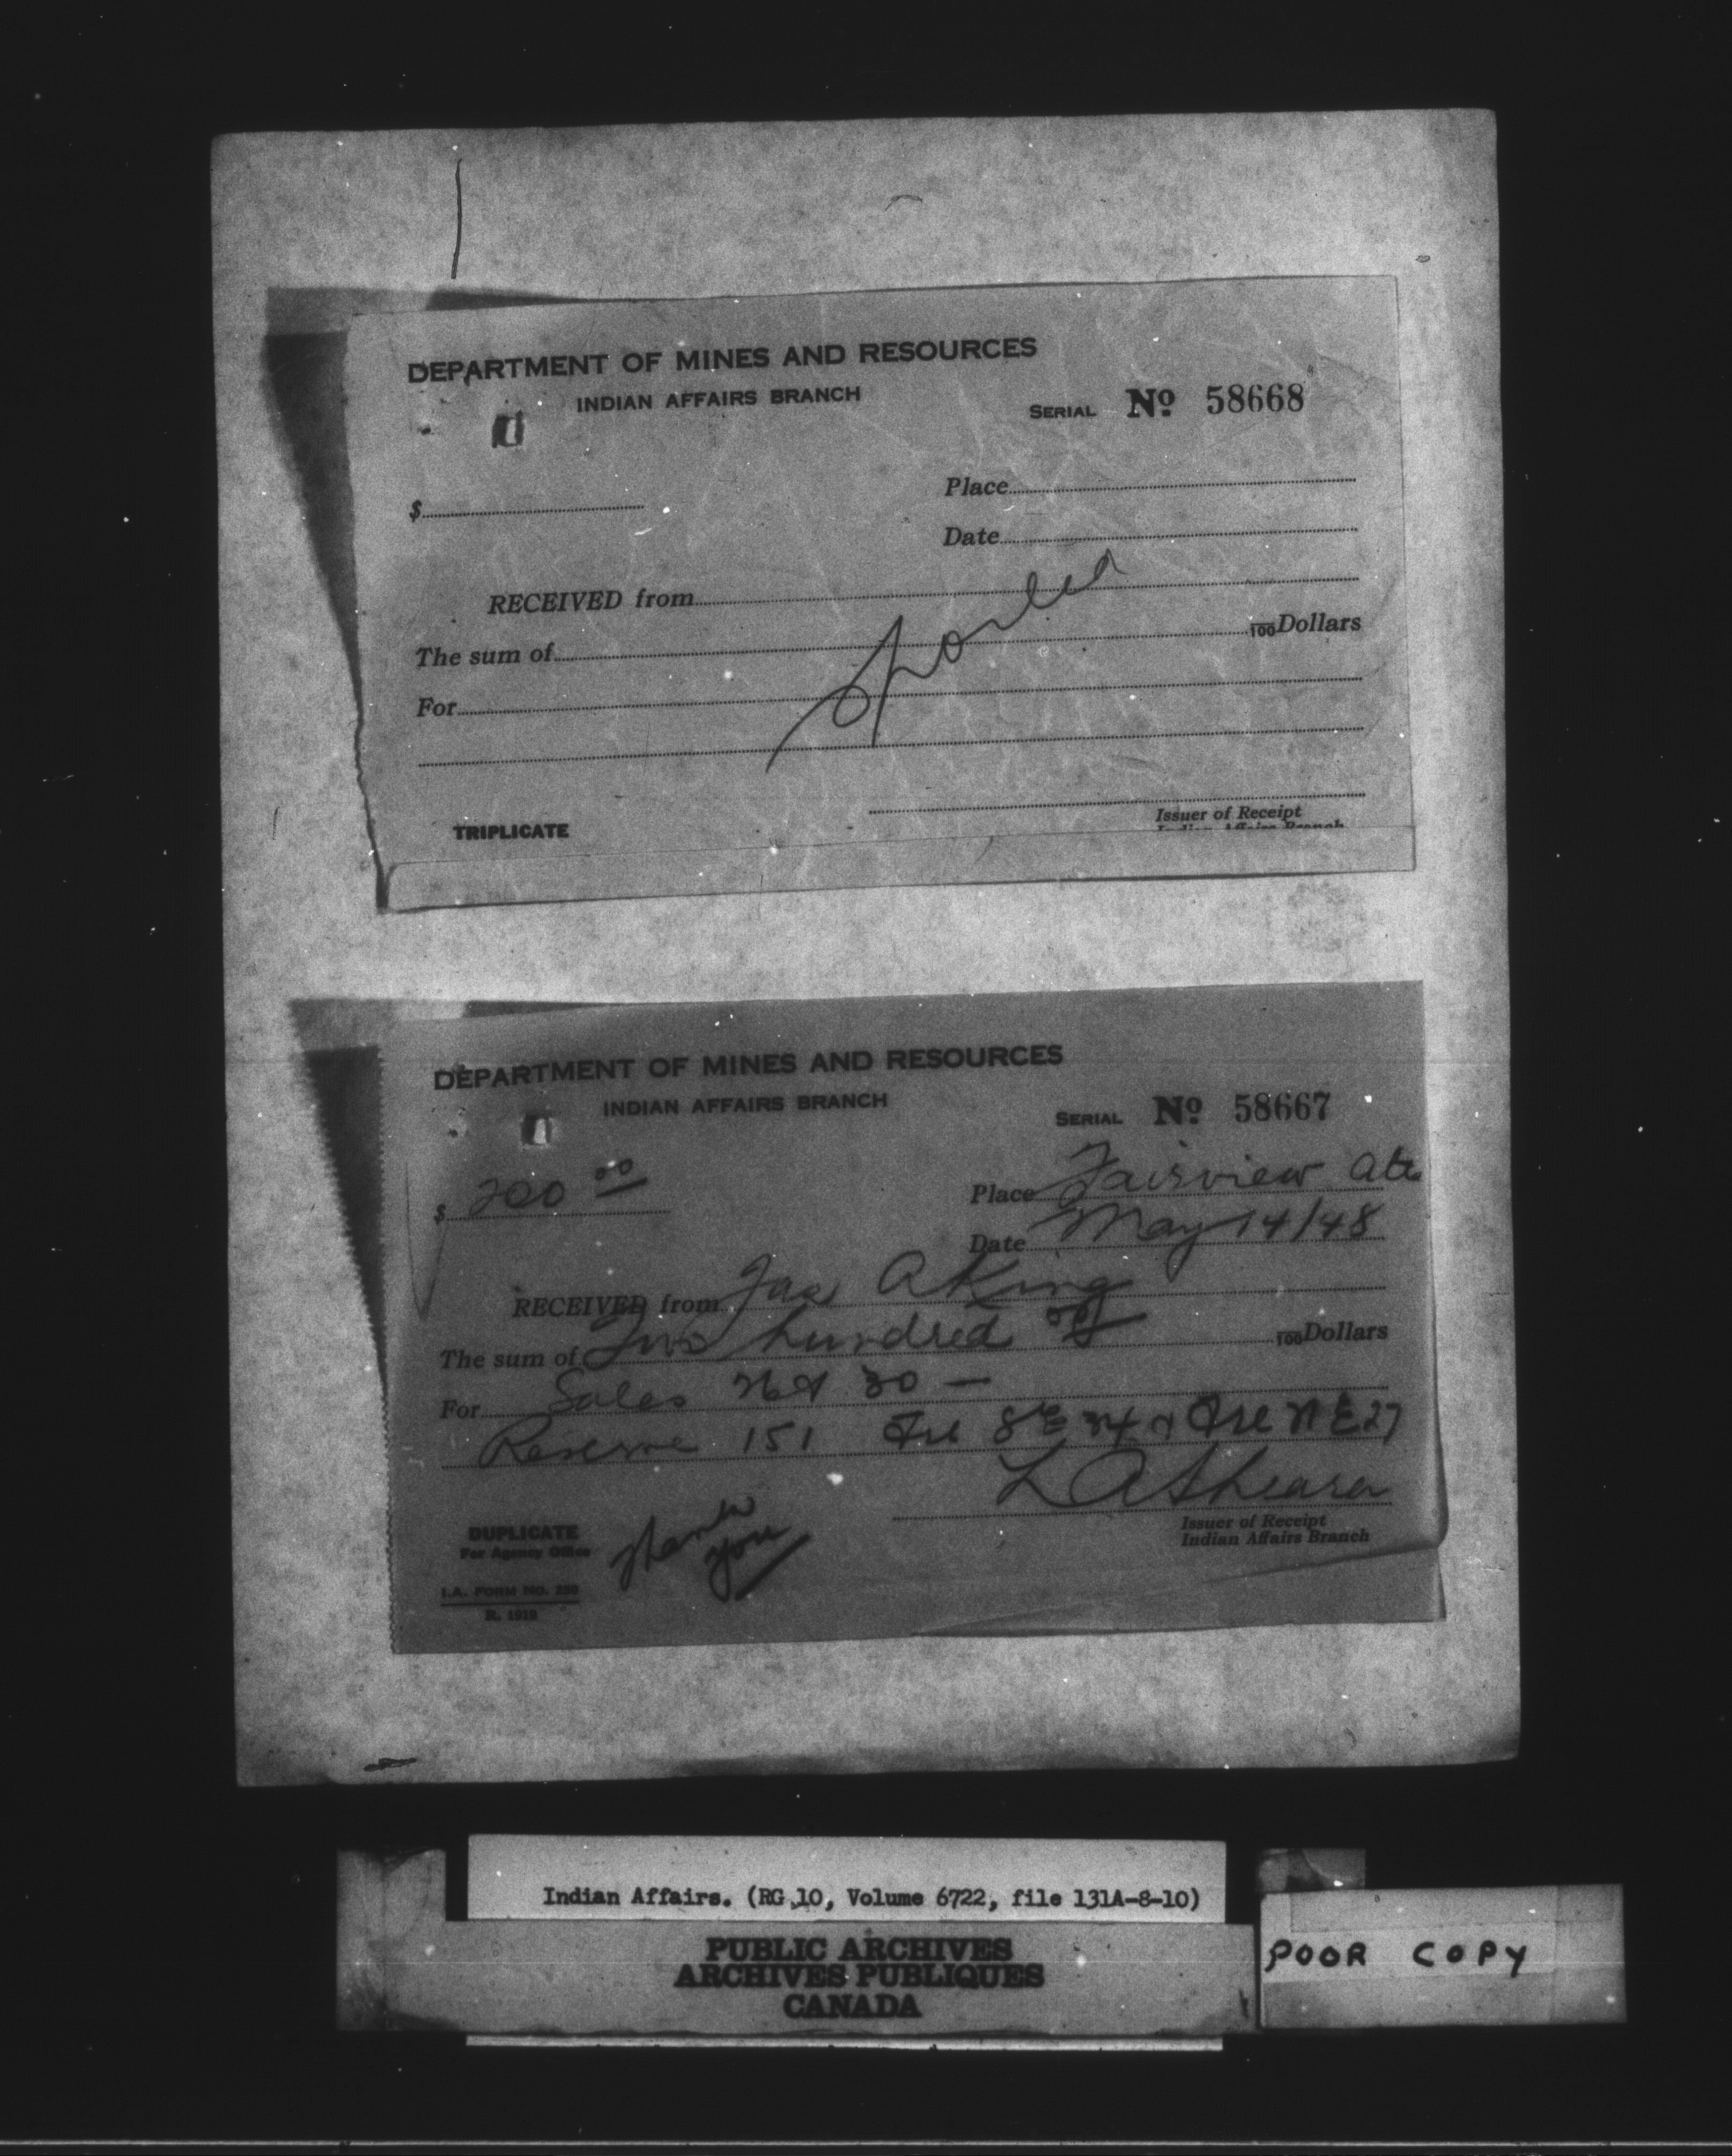 DEPARTMENT OF MINES AND RESOURCES
INDIAN AFFAIRS BRANCH
SERIAL No 58668
Place
$
Date
RECEIVED from
The sum of 100 Dollars
For
Spoiled
Issuer of Receipt
Indian Affairs Branch
TRIPLICATE
DEPARTMENT OF MINES AND RESOURCES
INDIAN AFFAIRS BRANCH
SERIAL No 58667
$ 200 00
Place Fairview Alta
Date May 14/48
RECEIVED from Jas A King
The sum of Two hundred 100 Dollars
For Sales 26 & 30 —
Reserve 151 Fre SE 34 & Fre NE 27
L A Shearer
Issuer of Receipt
Indian Affairs Branch
DUPLICATE
For Agency Office
Thank
you
I.A. FORM NO.
R.
Indian Affairs. (RG 10, Volume 6722, file 131A-8-10)
PUBLIC ARCHIVES
ARCHIVES PUBLIQUES
CANADA
POOR COPY